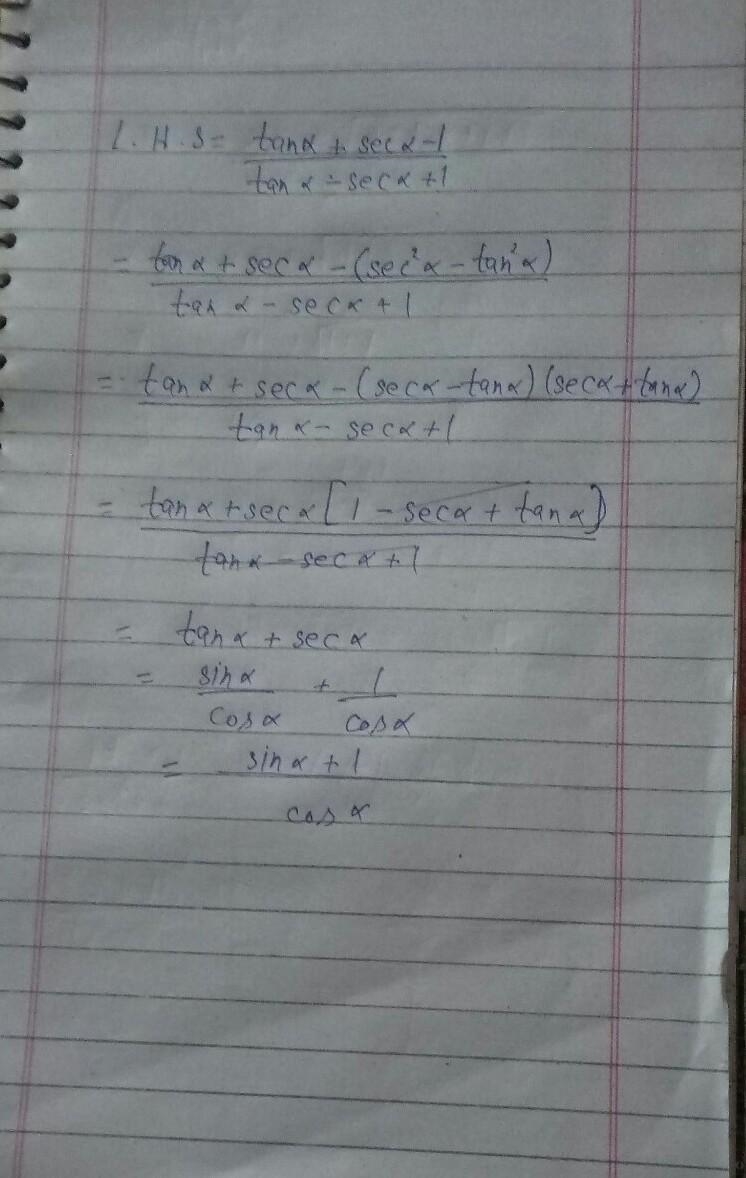 L.H.S = tanα + secα - 1
tanα - secα + 1
= tanα + secα - (sec²α - tan²α)
tanα - secα + 1
= tanα + secα - (secα - tanα) (secα + tanα)
tanα - secα + 1
= tanα + secα [1 - secα + tanα]
tanα - secα + 1
= tanα + secα
= sinα + 1
cosα cosα
= sinα + 1
cosα